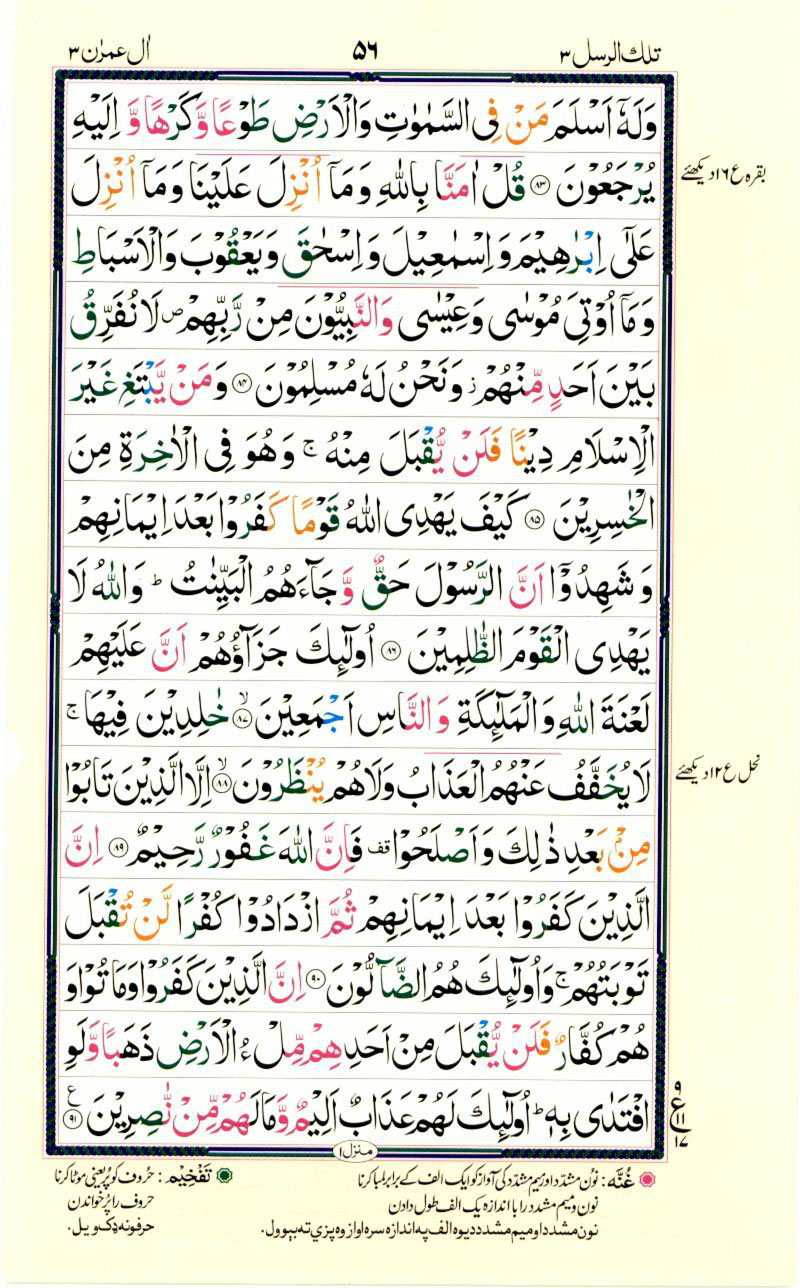 تلك الرسل ۳ ۵۶ اٰل عمرٰن ۳
وَلَهٗۤ اَسْلَمَ مَنْ فِی السَّمٰوٰتِ وَالْاَرْضِ طَوْعًا وَّكَرْهًا وَّ اِلَیْهِ
یُرْجَعُوْنَ ۝۸۳ قُلْ اٰمَنَّا بِاللّٰهِ وَ مَاۤ اُنْزِلَ عَلَیْنَا وَ مَاۤ اُنْزِلَ
بقره ع ۱۶ دیکھئے
عَلٰۤی اِبْرٰهِیْمَ وَ اِسْمٰعِیْلَ وَ اِسْحٰقَ وَ یَعْقُوْبَ وَالْاَسْبَاطِ
وَ مَاۤ اُوْتِیَ مُوْسٰی وَ عِیْسٰی وَالنَّبِیُّوْنَ مِنْ رَّبِّهِمْ ص لَا نُفَرِّقُ
بَیْنَ اَحَدٍ مِّنْهُمْ ز وَ نَحْنُ لَهٗ مُسْلِمُوْنَ ۝۸۴ وَ مَنْ یَّبْتَغِ غَیْرَ
الْاِسْلَامِ دِیْنًا فَلَنْ یُّقْبَلَ مِنْهُ ج وَ هُوَ فِی الْاٰخِرَةِ مِنَ
الْخٰسِرِیْنَ ۝۸۵ كَیْفَ یَهْدِی اللّٰهُ قَوْمًا كَفَرُوْا بَعْدَ اِیْمَانِهِمْ
وَ شَهِدُوْۤا اَنَّ الرَّسُوْلَ حَقٌّ وَّ جَآءَهُمُ الْبَیِّنٰتُ ط وَاللّٰهُ لَا
یَهْدِی الْقَوْمَ الظّٰلِمِیْنَ ۝۸۶ اُولٰٓئِكَ جَزَآؤُهُمْ اَنَّ عَلَیْهِمْ
لَعْنَةَ اللّٰهِ وَ الْمَلٰٓئِكَةِ وَ النَّاسِ اَجْمَعِیْنَ ۝۸۷ لا خٰلِدِیْنَ فِیْهَا ج
لَا یُخَفَّفُ عَنْهُمُ الْعَذَابُ وَلَا هُمْ یُنْظَرُوْنَ ۝۸۸ لا اِلَّا الَّذِیْنَ تَابُوْا
نحل ع ۱۲ دیکھئے
مِنْۢ بَعْدِ ذٰلِكَ وَ اَصْلَحُوْا قف فَاِنَّ اللّٰهَ غَفُوْرٌ رَّحِیْمٌ ۝۸۹ اِنَّ
الَّذِیْنَ كَفَرُوْا بَعْدَ اِیْمَانِهِمْ ثُمَّ ازْدَادُوْا كُفْرًا لَّنْ تُقْبَلَ
تَوْبَتُهُمْ ج وَ اُولٰٓئِكَ هُمُ الضَّآلُّوْنَ ۝۹۰ اِنَّ الَّذِیْنَ كَفَرُوْا وَ مَاتُوْا وَ
هُمْ كُفَّارٌ فَلَنْ یُّقْبَلَ مِنْ اَحَدِهِمْ مِّلْءُ الْاَرْضِ ذَهَبًا وَّلَوِ
افْتَدٰی بِهٖ ط اُولٰٓئِكَ لَهُمْ عَذَابٌ اَلِیْمٌ وَّ مَا لَهُمْ مِّنْ نّٰصِرِیْنَ ۝۹۱ ع
۹ ع ۱۱ ۱۷
منزل ۱
غُنَّه : نون مشدّد اور میم مشدّد کی آواز کو ایک الف کے برابر لمبا کرنا تَفْخِیْم : حروف کو پُر یعنی موٹا کرنا
نون و میم مشدد را با اندازه یک الف طول دادن حروف را پُر خواندن
نون مشدد او میم مشدد دیوه الف په اندازه سره اواز وه پزې ته بېوول. حرفونه ډک ویل.